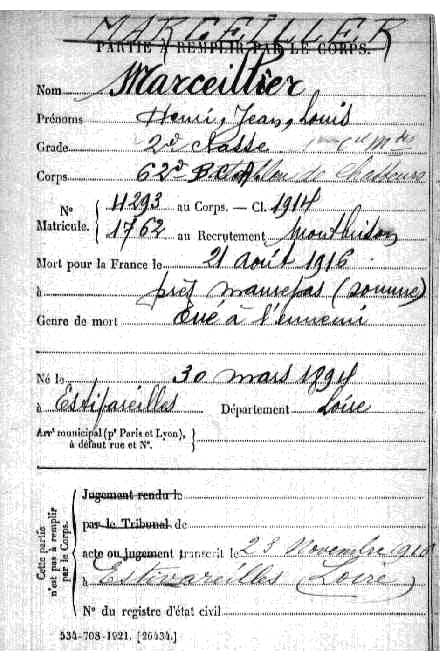 MARCEILLER
PARTIE À REMPLIR PAR LE CORPS.
Nom Marceillier
Prénoms Henri, Jean, Louis
Grade 2e Classe
Corps 62e Bataillon de Chasseurs
N° Matricule. 4293 au Corps. — Cl. 1914
1762 au Recrutement Montbrison
Mort pour la France le 21 août 1916
à près maurepas (somme)
Genre de mort Tué à l'ennemi
Né le 30 mars 1894
à Estivareilles Département Loire
Arrt municipal (pr Paris et Lyon), à défaut rue et N°.
Cette partie n'est pas à remplir par le Corps.
Jugement rendu le
par le Tribunal de
acte ou jugement transcrit le 23 Novembre
à Estivareilles (Loire)
N° du registre d'état civil
534-708-1921. [26434.]